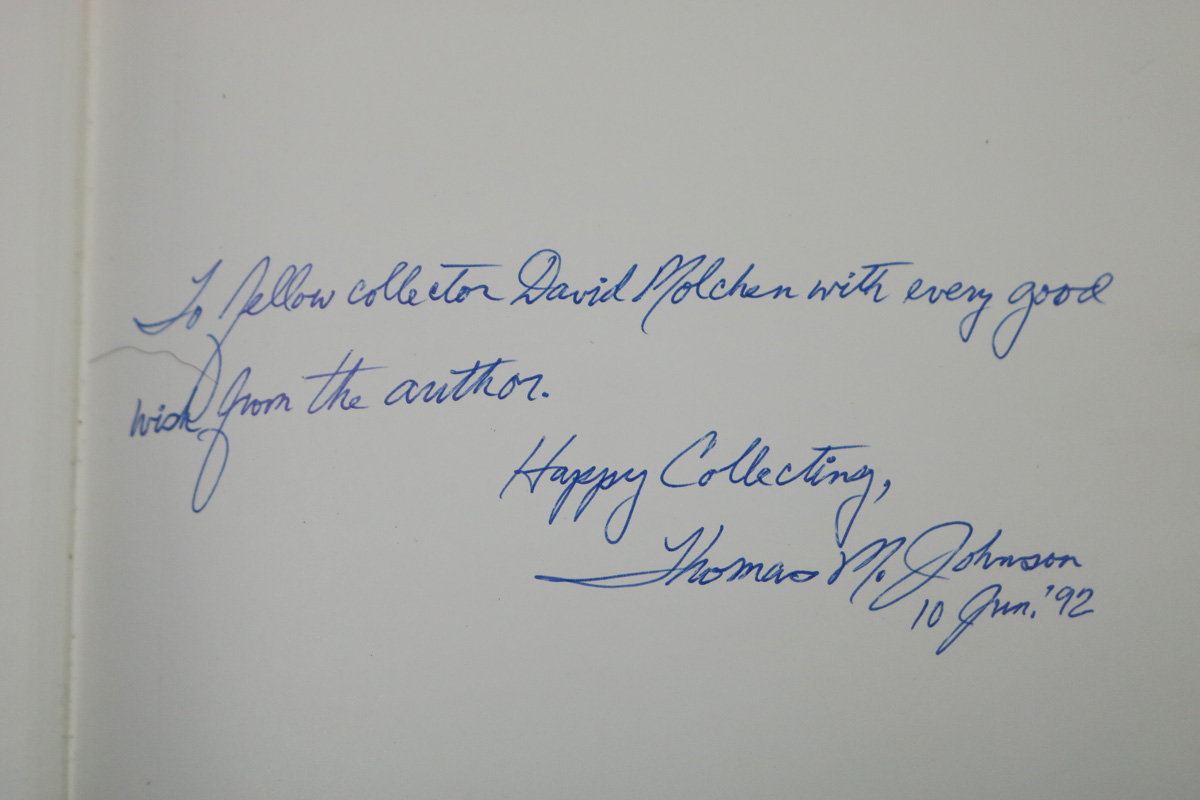 To fellow collector David Molchen with every good
wish from the author.
Happy Collecting,
Thomas M. Johnson
10 Jun. '92